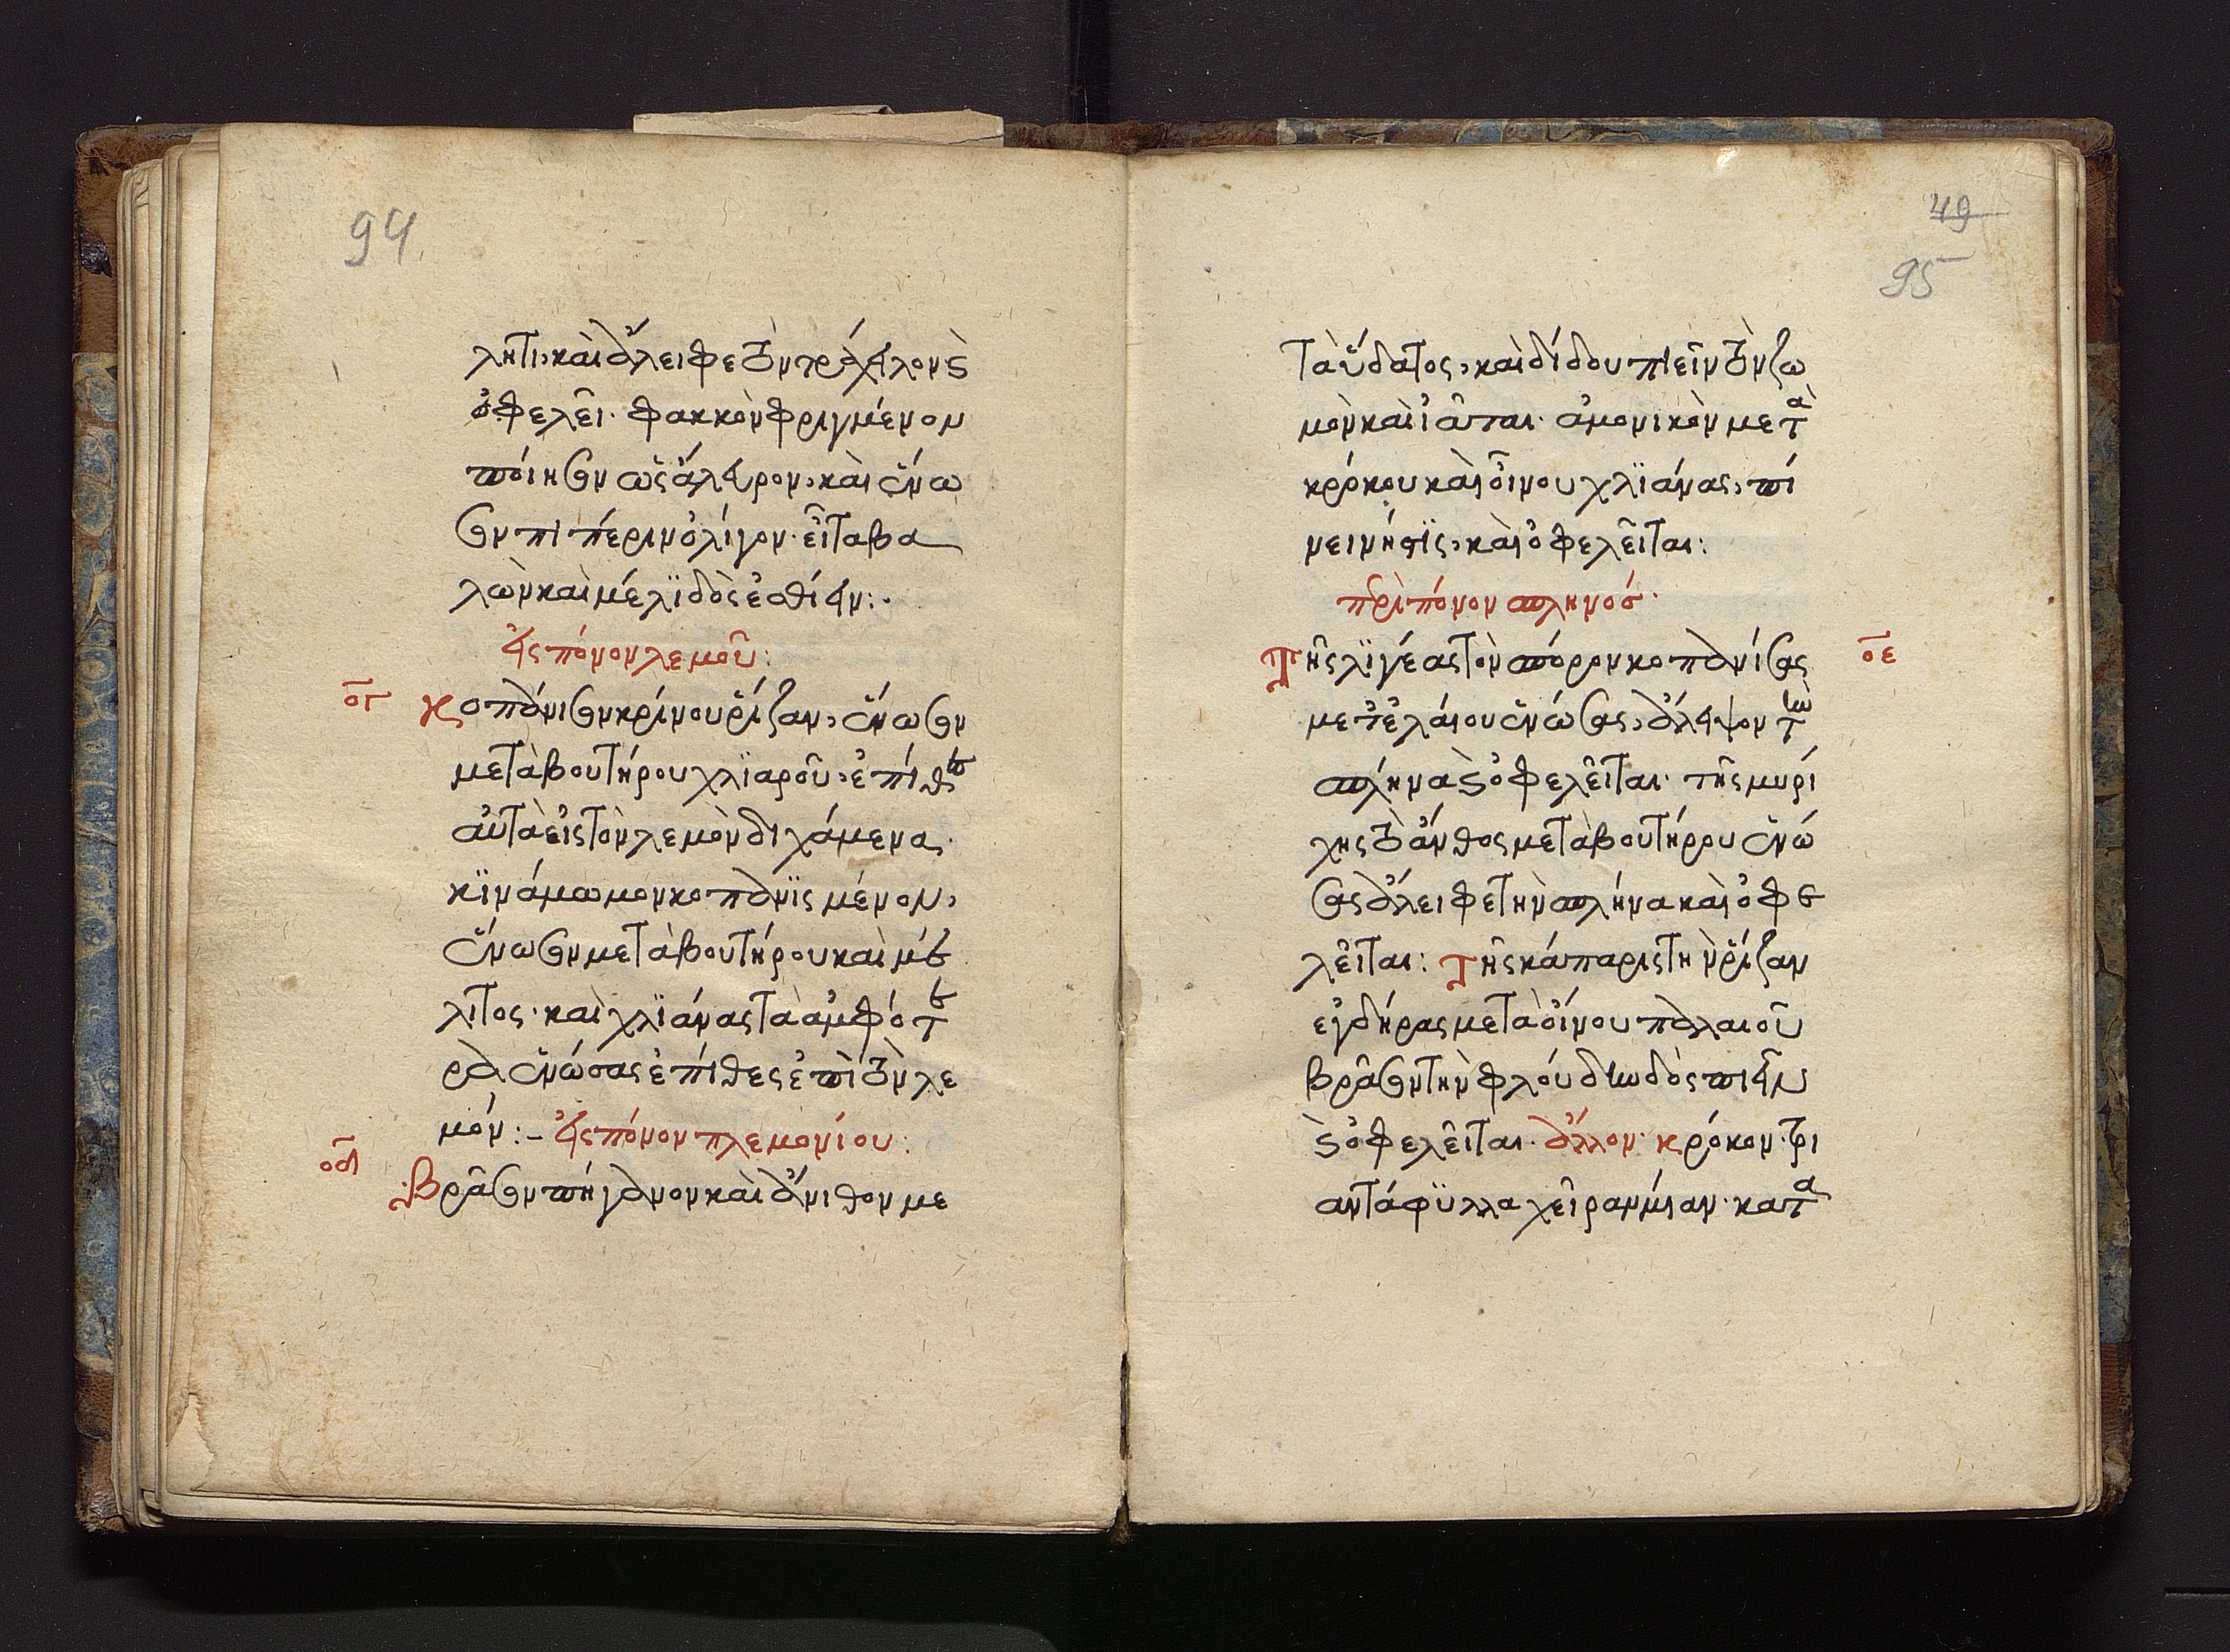 94
λητι, καὶ ἄλειφε τὸν τράχηλον ϛ
ὀφελεῖ. φακκὸν φριγμένον
ποίησην ὡς ἄλευρον, καὶ ἕνω
σην πιπέριν ὀλίγον. εἶτα βα
λὼν καὶ μέλϊ δὸς ἐσθίειν:.
εἰς πόνον λεμοῦ:
ογ
Κοπάνισην κρίνου ῥίζαν, ἕνωσην
μετὰ βουτήρου χλϊαροῦ, ἐπίθες
αὐτὰ εἰς τὸν λεμὸν διχάμενα.
κϊνάμωμον κοπανϊσμένον,
ἕνωσην μετὰ βουτήρου καὶ μέ
λιτος. καὶ χλϊάνας τὰ ἀμφότε
ρα ἑνώσας ἐπίθες ἐπὶ τὸν λε
μόν:- εἰς πόνον πλεμονίου:
οδ
Βράσην πήγανον καὶ ἄνιθον με
49
95
τὰ ὕδατος, καὶ δίδου πιεῖν τὸν ζω
μὸν καὶ ἰᾶται. ἀμονικὸν μετὰ
κρόκου καὶ οἴνου χλϊάνας, πί
νει νήστϊς, καὶ ὀφελεῖται:
περὶ πόνον σπληνός.
οε
Τῆς λϊγέας τὸν σπόρον κοπανίσας
μετ' ἐλαίου ἑνώσας, ἄλειψον τὼ
σπλήνα ϛ ὀφελεῖται. τῆς μυρί
χης τὸ ἄνθος μετὰ βουτήρου ἑνώ
σας ἄλειφε τὴν σπλήνα καὶ ὀφε
λεῖται: Τῆς κάππαρις τὴν ῥίζαν
ἐγδήρας μετὰ οἴνου παλαιοῦ
βράσην τὴν φλούδιω δὸς πιεῖν
ϛ ὀφελεῖται. ἄλλον. κρόκον. τρι
αντάφϋλλα χεῖραν μίαν. κατὰ